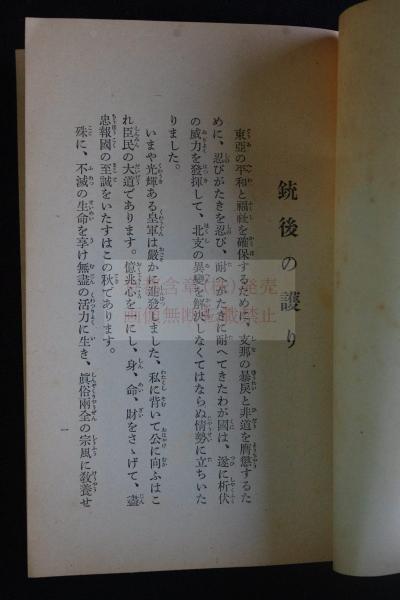 銃後の護り
東亞の平和と福祉を確保するために、支那の暴戻と非道を膺懲するた
めに、忍びがたきを忍び、耐へがたきに耐へてきたわが國は、遂に折伏
の威力を發揮して、北支の異變を解決しなくてはならぬ情勢に立ちいた
りました。
いまや光輝ある皇軍は嚴かに進發しました、私に背いて公に向ふはこ
れ臣民の大道であります。億兆心を一にし、身、命、財をさゝげて、盡
忠報國の至誠をいたすはこの秋であります。
殊に、不滅の生命を享け無盡の活力に生き、眞俗兩全の宗風に敎養せ
一
画像無断転載禁止